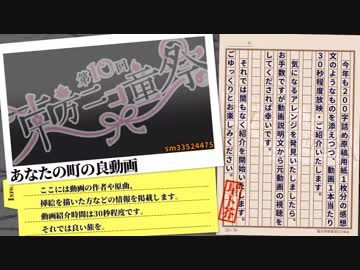 第10回
東方ニコ童祭
sm33524475
あなたの町の良動画
ここには動画の作者や原曲、
挿絵を描いた方などの情報を掲載します。
動画紹介時間は30秒程度です。
それでは良い旅を。
今年も200字詰め原稿用紙1枚分の感想
文のようなものを添えつつ、動画1本当たり
30秒程度放映・ご紹介いたします。
気になるアレンジを発見いたしましたら、
お手数ですが動画説明文から元動画の視聴を
してくだされば幸いです。
それでは間もなく紹介を開始いたします。
ごゆっくりとお楽しみください。